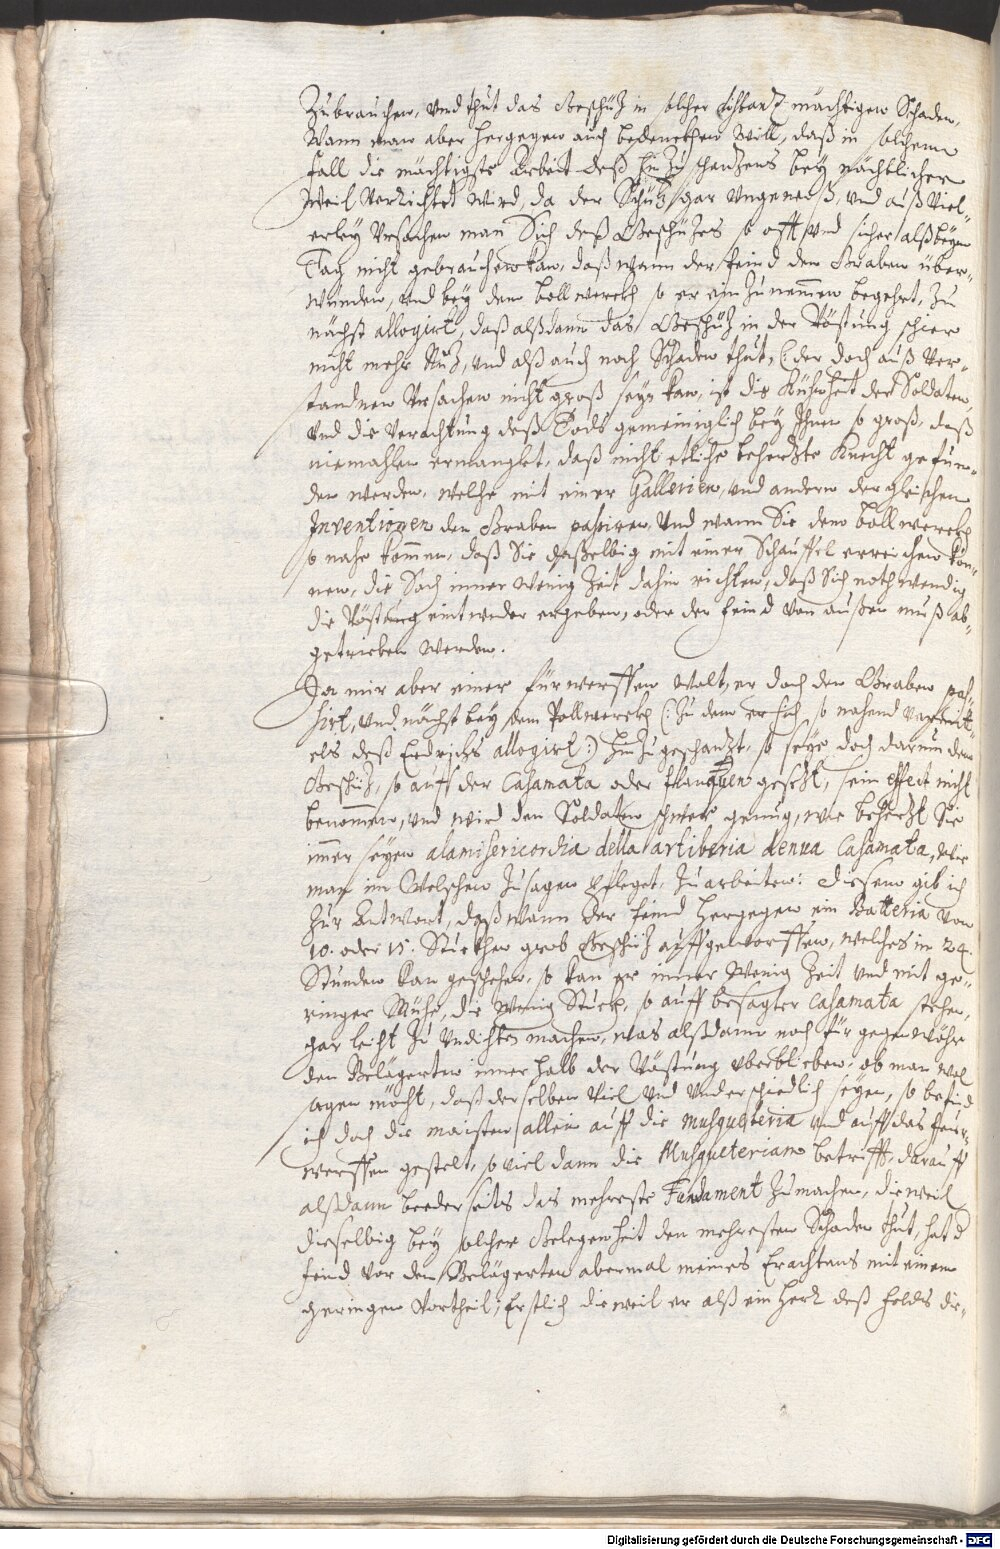 Zubrauchen, vnd thut das Geschüz in solcher distantz mächtigen Schaden,
Wann man aber hergegen auch bedenckhen will, daß in solchem
fall die mächtigste Arbeit deß hin Zu schantzens bey nächtlicher
Weil verrichtet wird, da der Schuz gar vngewiß, vnd auß viel-
erley vrsachen man Sich deß Geschüzes so offt vnd sicher alß beym
Tag nicht gebrauchen kan, daß wann der feind den Graben über-
wunden, vnd bey dem bollwerckh so er ein Zunemmen begehrt, Zu
nächst allogirt, daß alßdann das Geschüz in der Vöstung schier
nicht mehr Nuz, vnd alß auch noch Schaden thut, (: der doch auß ver-
standnen Vrsachen nicht groß seyn kan, ist die Kühnheit der Soldaten,
vnd die Verachtung deß Tods gemeiniglich bey Ihnen so groß, daß
niemahlen ermanglet, daß nicht etliche beherzte Knecht gefun-
den werden, welche mit einer Gallerien, vnd andern dergleichen
Inventionen den Graben passiren, Vnd wann Sie dem bollwerckh
so nahe kommen, daß Sie dasselbig mit einer Schauffel erreichen kön-
nen, die Sach inner wenig Zeit dahin richten, daß Sich nothwendig
die Vöstung eintweder ergeben, oder der feind von außen muß ab-
getrieben werden.
Da mir aber einer fürwerffen wolt, er doch den Graben pas-
sirt, vnd nächst bey dem Pollwerckh (: Zu dem er sich so nahend
deß Erdrichs allogirt:) hin Zu geschanzt, so seye doch darum dem
Geschüz, so auff der Casamata oder flanquen gesezt, sein effect nicht
benommen, vnd wird den Soldaten schwer genug, wie beherzt Sie
immer seyen alamisericordia della artiberia denua Casamata, wie
man im Welschen Zusagen Pfleget, Zu arbeiten: diesem gib ich
Zur Antwort, daß wann der feind hergegen ein Batteria von
10. oder 15. Stuckhen grob Geschüz auffgeworffen, welches in 24.
Stunden kan geschehen, so kan er inner wenig Zeit vnd mit ge-
ringer Mühe, die wenig Stuckh, so auff besagter Casamata stehen,
gar leicht Zu vndichten machen, was alßdann noch für gegenwöhr
den Belägerten innerhalb der Vöstung vberblieben, ob man wol
sagen möcht, daß derselben viel vnd vnderschiedlich seyen, so befind
ich doch die maisten allein auff die Musqueteria vnd auff das feur-
werffen gestelt, so viel dann die Musqueterian betrifft, darauff
alßdann beederseits das mehreste Fundament Zumachen, dieweil
dieselbig bey solcher Gelegenheit den mehresten Schaden thut, hat d
feind vor den Belägerten abermal meines Erachtens mit einem
geringen Vortheil; Erstlich dieweil er alß ein Herr deß felds die-
Digitalisierung gefördert durch die Deutsche Forschungsgemeinschaft - DFG